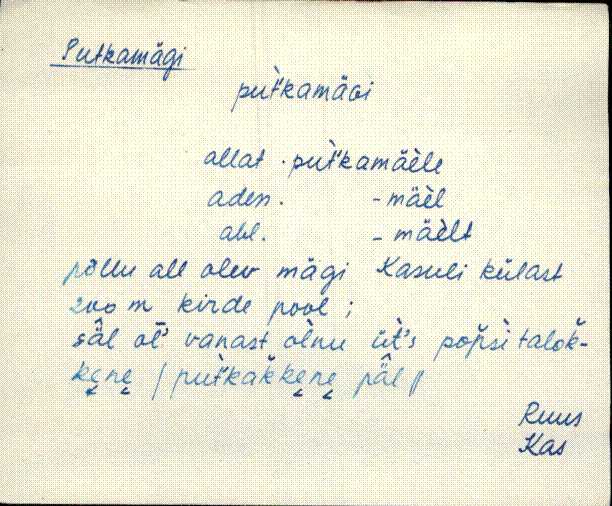 Putkamägi
put̀'kamäGi
allat. put̀'kamäèle
aden. - mäèl
abl. - mäèlt
põllu all olev mägi Kasuli külast
200 m kirde pool;
säl ol̄' vanast olnu üt̀'s pop̆si talok̆-
kęnę / put̀'kak̆kęnę päl /
Ruus
Kas